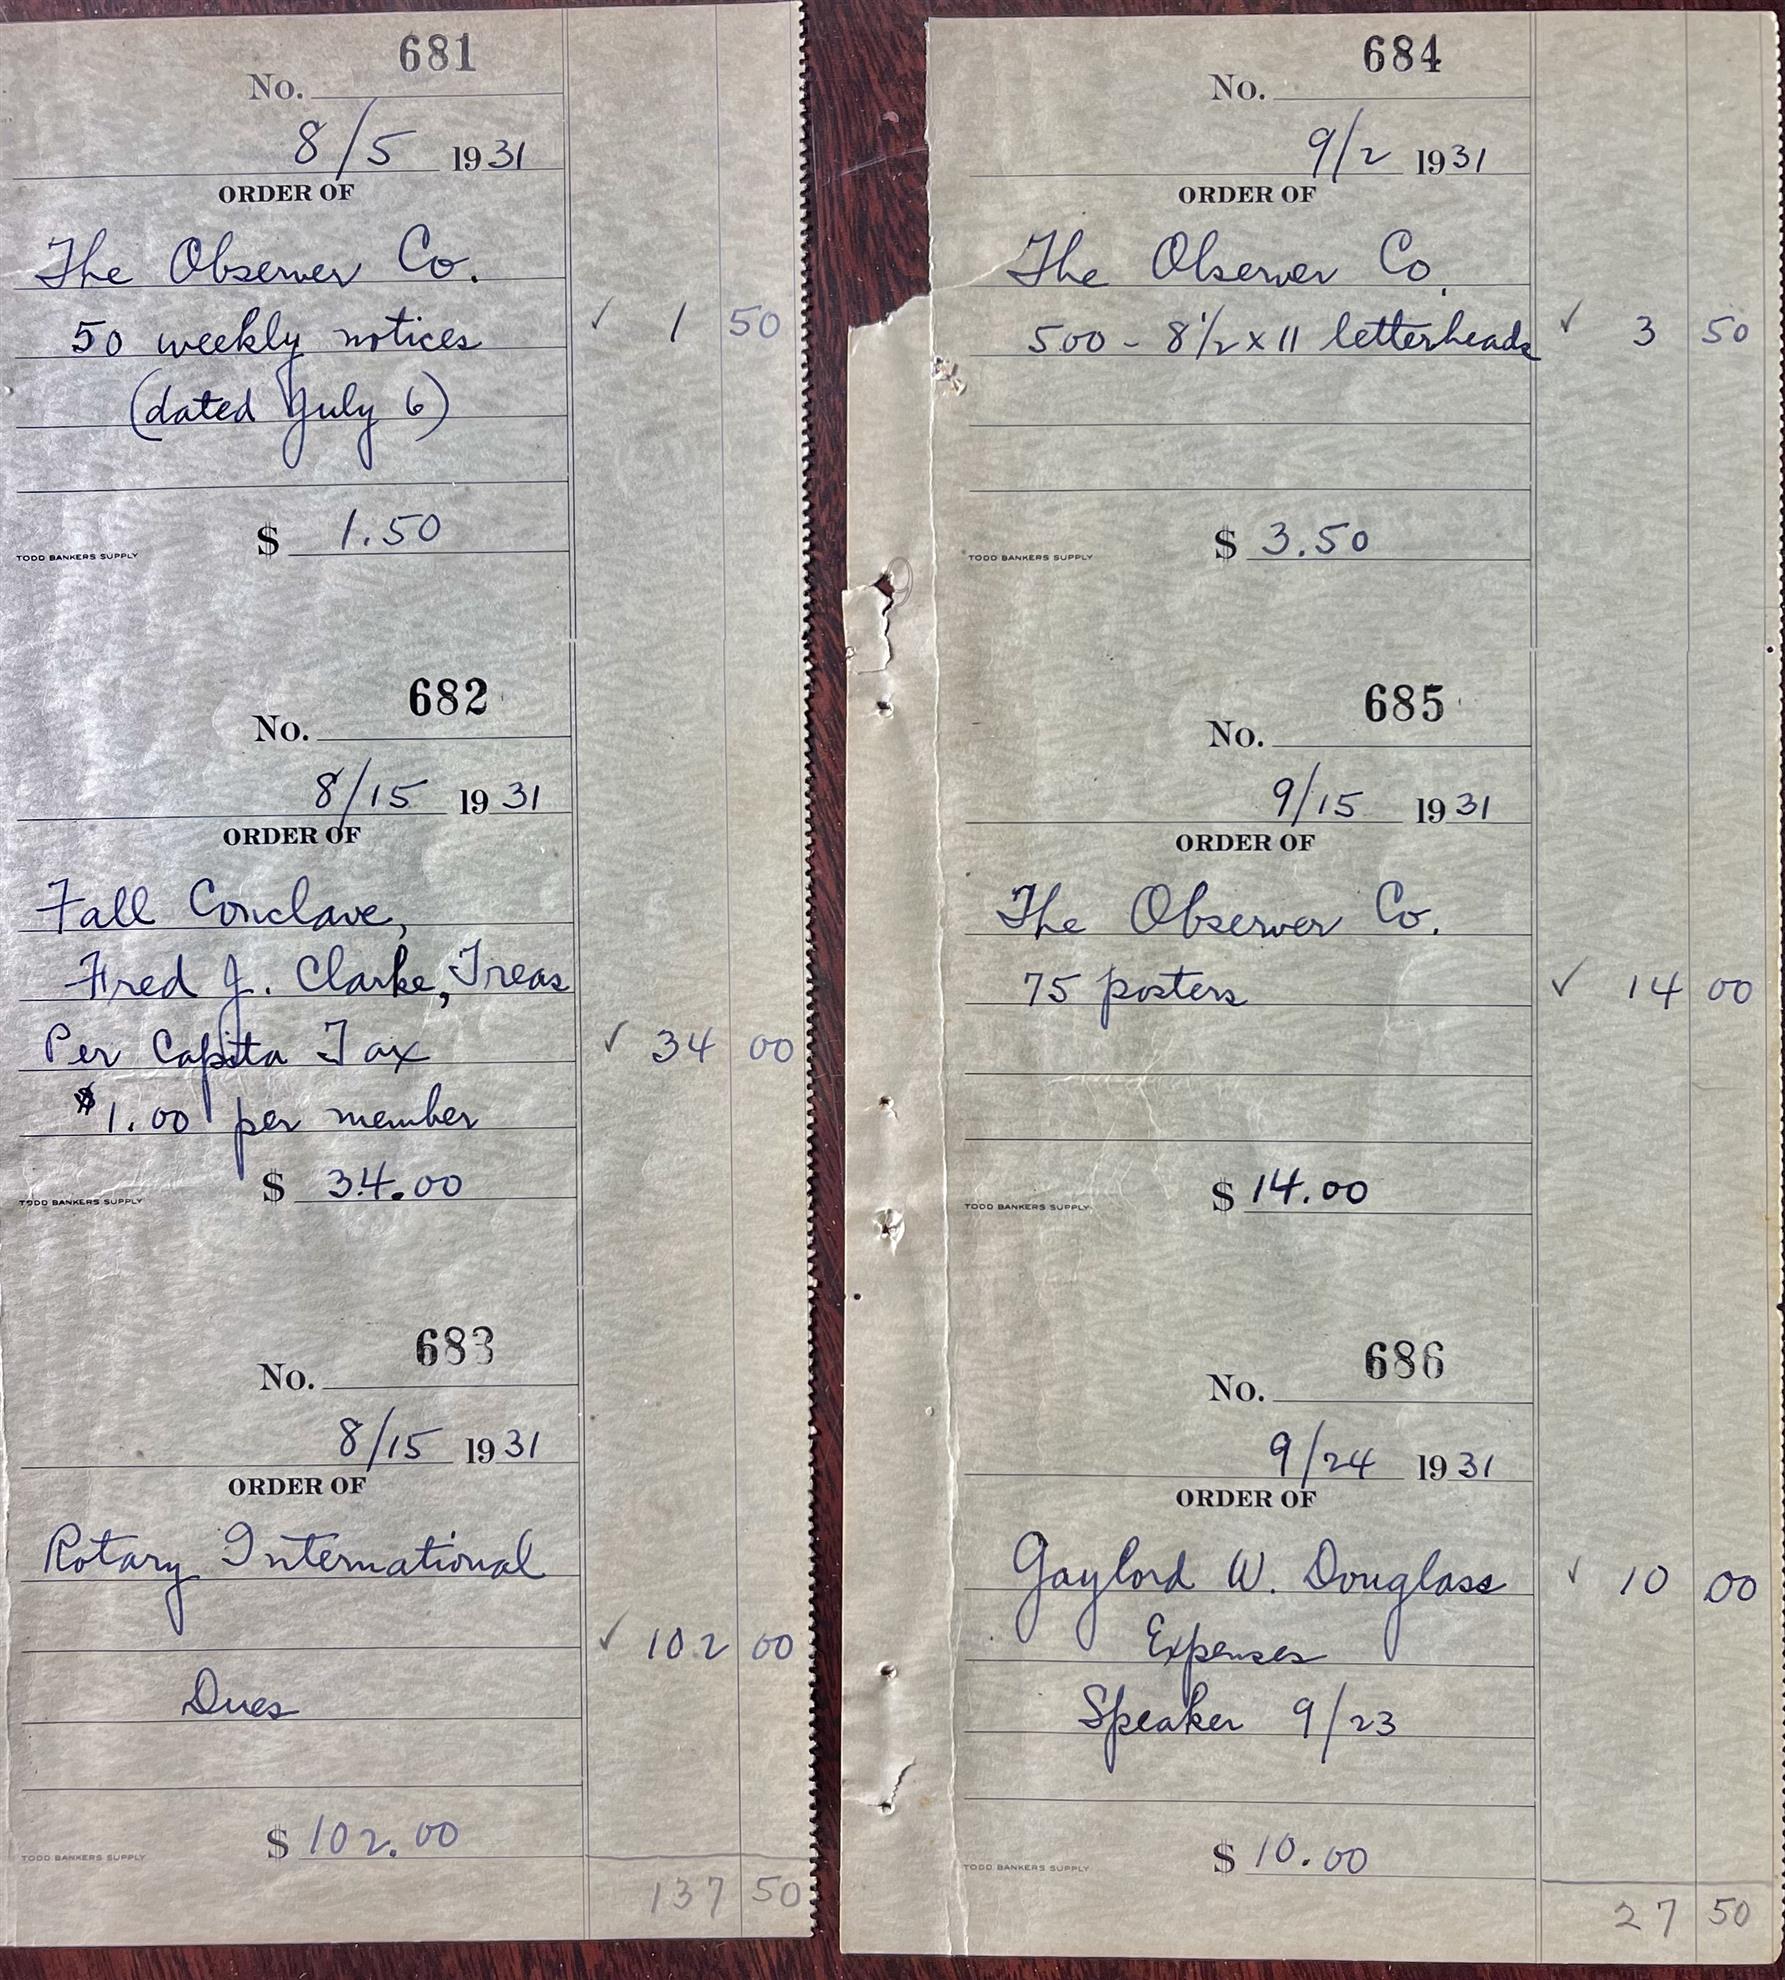 681
No.
8/5 1931
ORDER OF
The Observer Co.
50 weekly notices ✓ 1 50
(dated July 6)
$ 1.50
TODD BANKERS SUPPLY
682
No.
8/15 1931
ORDER OF
Fall Conclave,
Fred J. Clarke, Treas
Per Capita Tax ✓ 34 00
$1.00 per member
$ 34.00
TODD BANKERS SUPPLY
683
No.
8/15 1931
ORDER OF
Rotary International
✓ 102 00
Dues
$ 102.00
TODD BANKERS SUPPLY
137 50
684
No.
9/2 1931
ORDER OF
The Observer Co.
500 - 8½ x 11 letterheads ✓ 3 50
$ 3.50
TODD BANKERS SUPPLY
685
No.
9/15 1931
ORDER OF
The Observer Co.
75 posters ✓ 14 00
$ 14.00
TODD BANKERS SUPPLY
686
No.
9/24 1931
ORDER OF
Gaylord W. Douglass ✓ 10 00
Expenses
Speaker 9/23
$ 10.00
TODD BANKERS SUPPLY
27 50